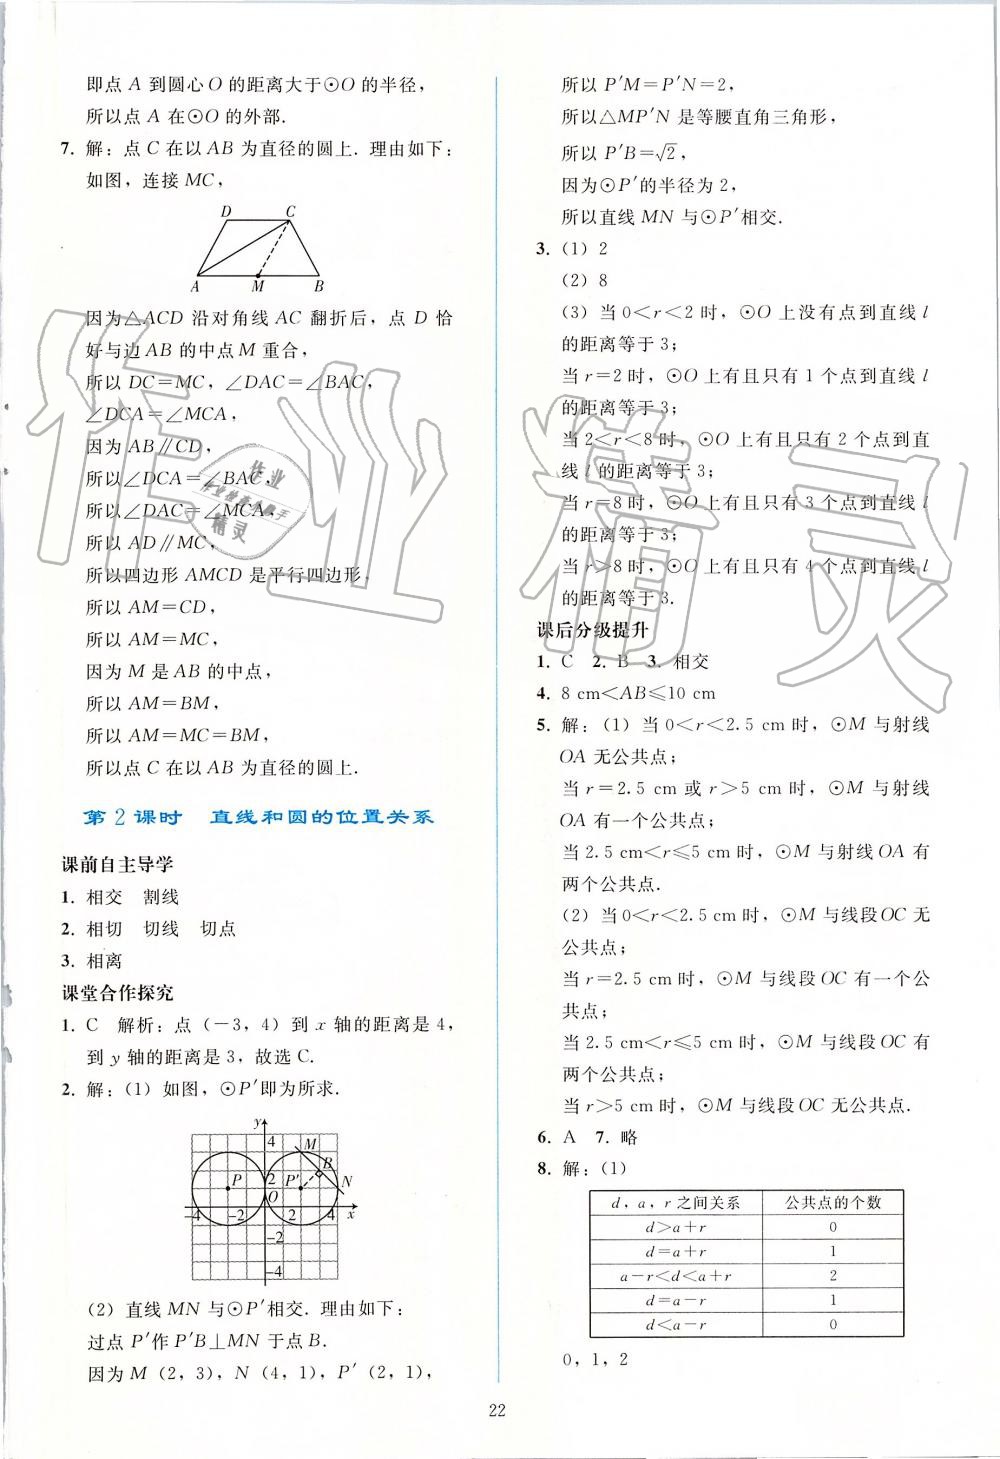 即点 A 到圆心 O 的距离大于⊙O 的半径，
所以点 A 在⊙O 的外部.
7. 解：点 C 在以 AB 为直径的圆上. 理由如下：
如图，连接 MC，
D C
A M B
因为△ACD 沿对角线 AC 翻折后，点 D 恰
好与边 AB 的中点 M 重合，
所以 DC＝MC，∠DAC＝∠BAC，
∠DCA＝∠MCA，
因为 AB∥CD，
所以∠DCA＝∠BAC，
所以∠DAC＝∠MCA，
所以 AD∥MC，
所以四边形 AMCD 是平行四边形，
所以 AM＝CD，
所以 AM＝MC，
因为 M 是 AB 的中点，
所以 AM＝BM，
所以 AM＝MC＝BM，
所以点 C 在以 AB 为直径的圆上.
第 2 课时　直线和圆的位置关系
课前自主导学
1. 相交　割线
2. 相切　切线　切点
3. 相离
课堂合作探究
1. C　解析：点（－3，4）到 x 轴的距离是 4，
到 y 轴的距离是 3，故选 C.
2. 解：（1）如图，⊙P′即为所求.
y
4 M
B
P 2 P′ N
O
－4 －2 2 4 x
－2
－4
（2）直线 MN 与⊙P′相交. 理由如下：
过点 P′作 P′B⊥MN 于点 B.
因为 M（2，3），N（4，1），P′（2，1），
所以 P′M＝P′N＝2，
所以△MP′N 是等腰直角三角形，
所以 P′B＝√2，
因为⊙P′的半径为 2，
所以直线 MN 与⊙P′相交.
3. （1）2
（2）8
（3）当 0＜r＜2 时，⊙O 上没有点到直线 l
的距离等于 3；
当 r＝2 时，⊙O 上有且只有 1 个点到直线 l
的距离等于 3；
当 2＜r＜8 时，⊙O 上有且只有 2 个点到直
线 l 的距离等于 3；
当 r＝8 时，⊙O 上有且只有 3 个点到直线 l
的距离等于 3；
当 r＞8 时，⊙O 上有且只有 4 个点到直线 l
的距离等于 3.
课后分级提升
1. C　2. B　3. 相交
4. 8 cm＜AB≤10 cm
5. 解：（1）当 0＜r＜2.5 cm 时，⊙M 与射线
OA 无公共点；
当 r＝2.5 cm 或 r＞5 cm 时，⊙M 与射线
OA 有一个公共点；
当 2.5 cm＜r≤5 cm 时，⊙M 与射线 OA 有
两个公共点.
（2）当 0＜r＜2.5 cm 时，⊙M 与线段 OC 无
公共点；
当 r＝2.5 cm 时，⊙M 与线段 OC 有一个公
共点；
当 2.5 cm＜r≤5 cm 时，⊙M 与线段 OC 有
两个公共点；
当 r＞5 cm 时，⊙M 与线段 OC 无公共点.
6. A　7. 略
8. 解：（1）
d，a，r 之间关系　公共点的个数
d＞a＋r　0
d＝a＋r　1
a－r＜d＜a＋r　2
d＝a－r　1
d＜a－r　0
0，1，2
22
作业精灵
作业
精灵